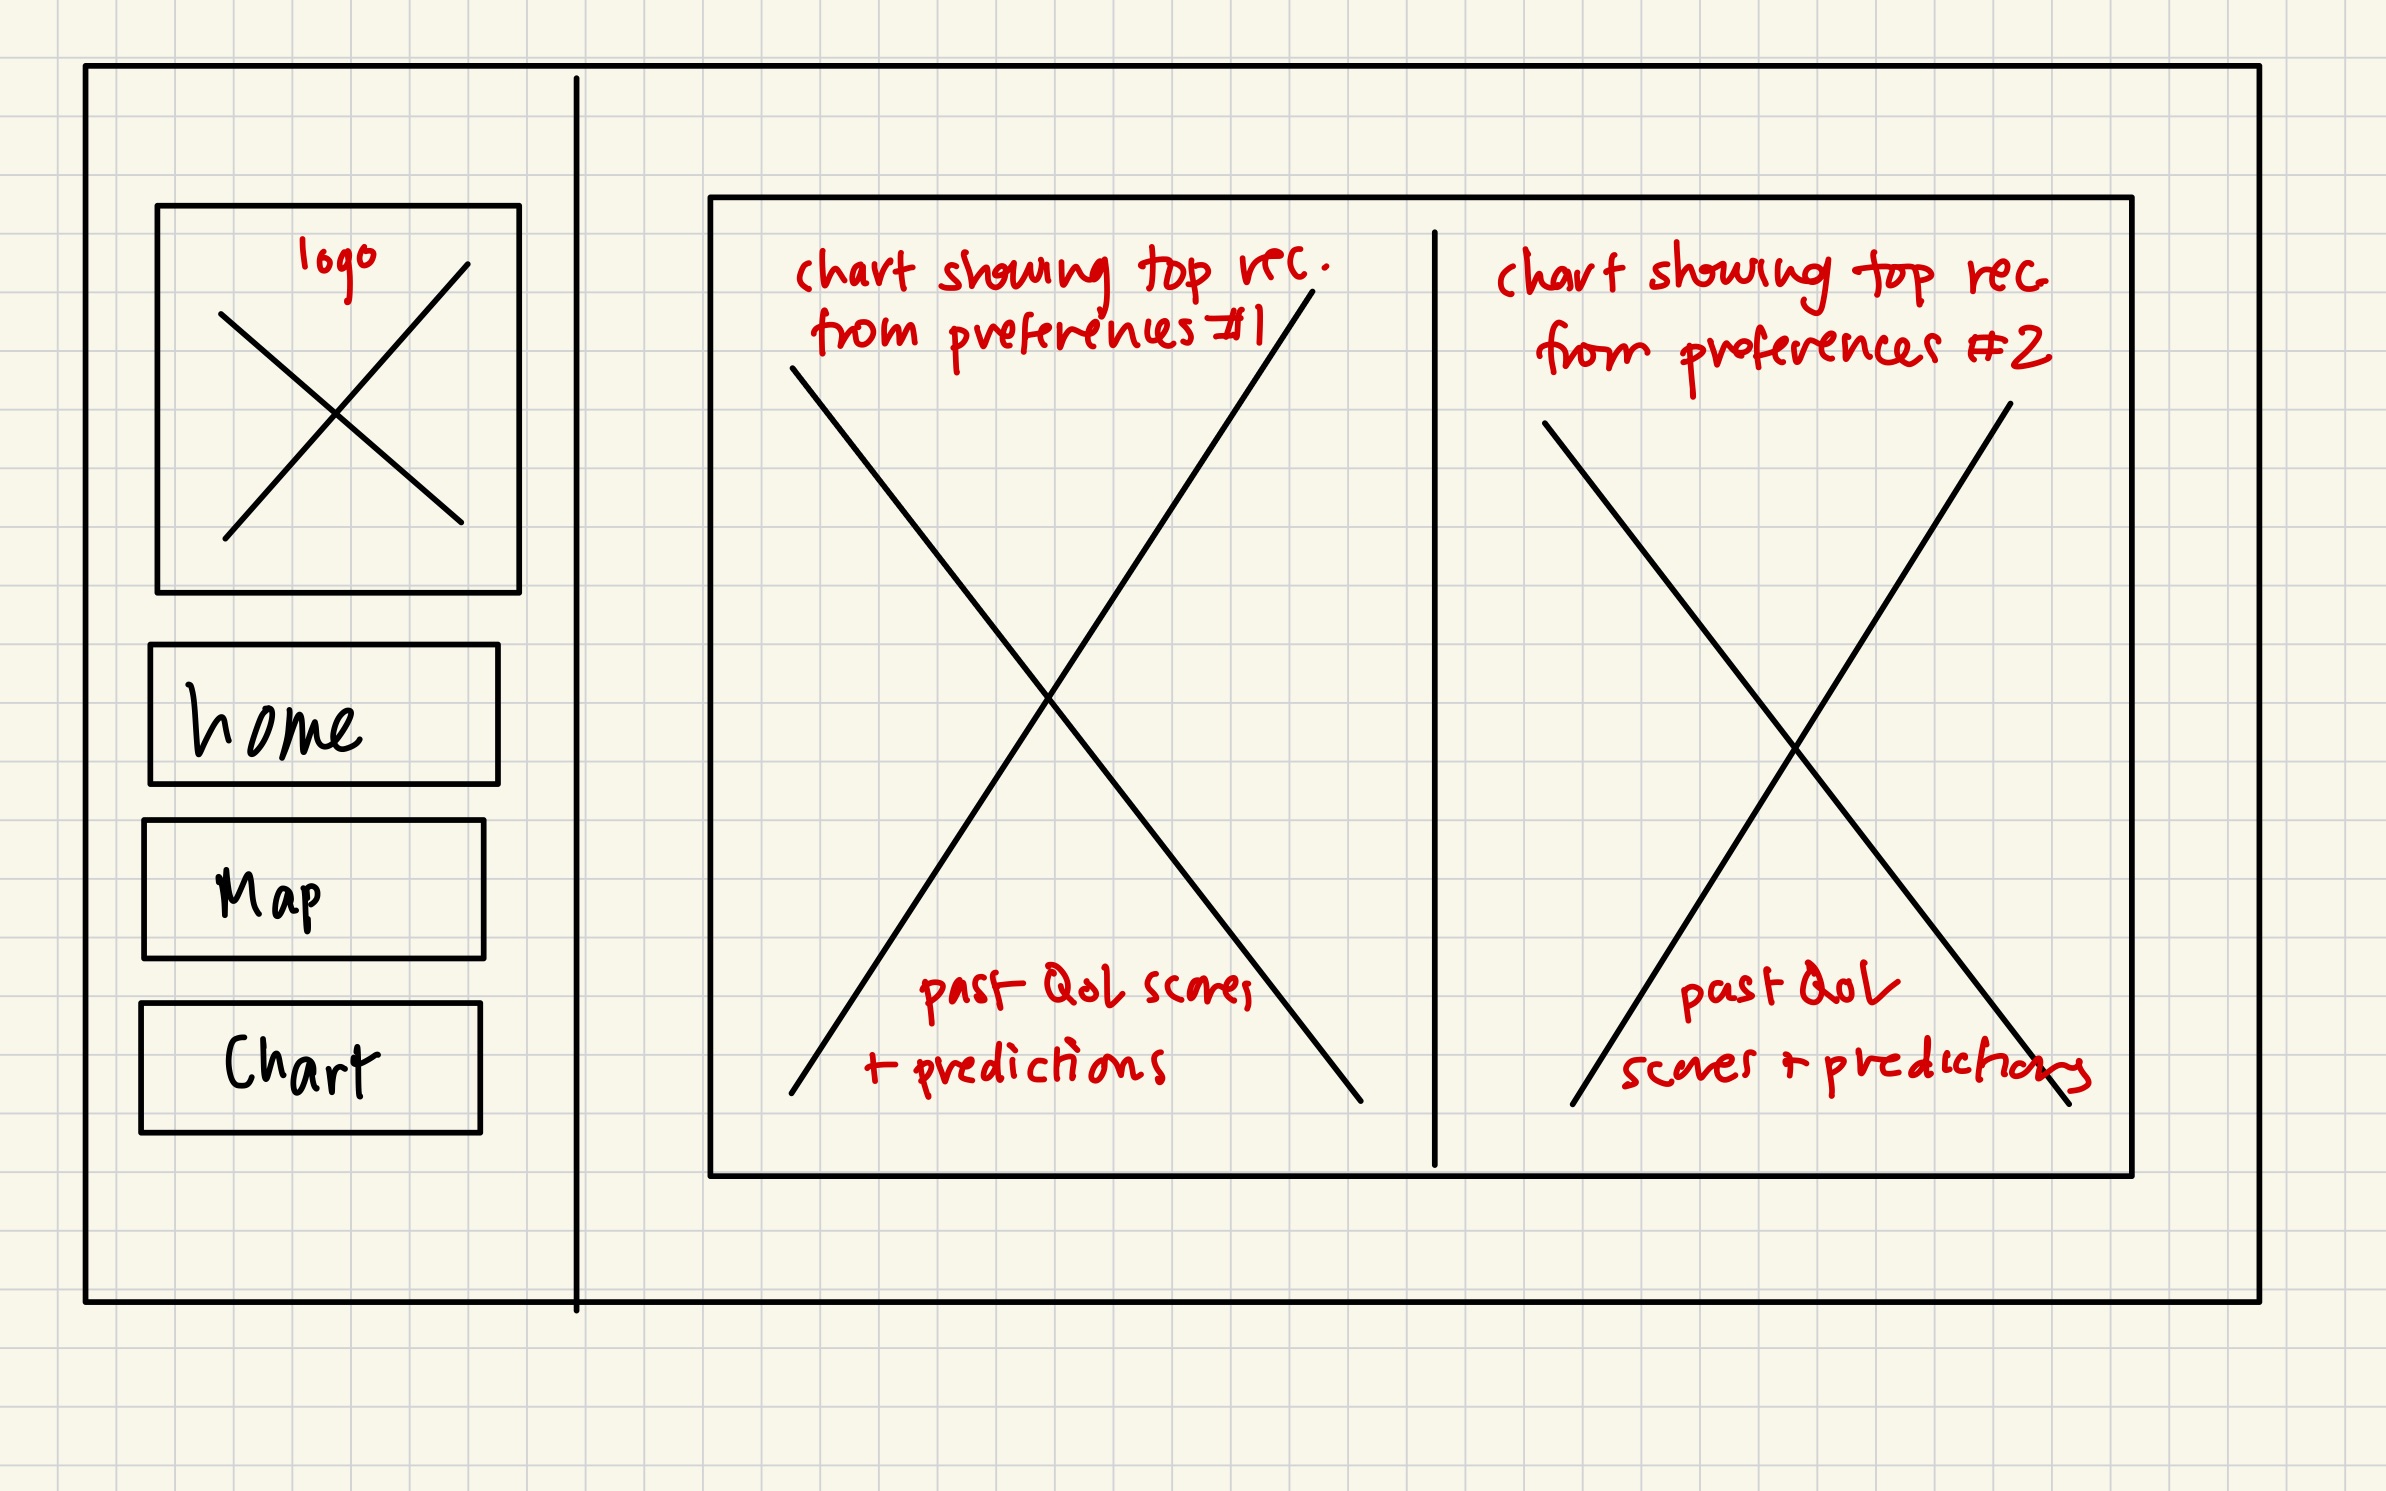 logo
home
Map
Chart
chart showing top rec.
from preferences #1
past QoL scores
+ predictions
chart showing top rec
from preferences #2
past QoL
scores + predictions